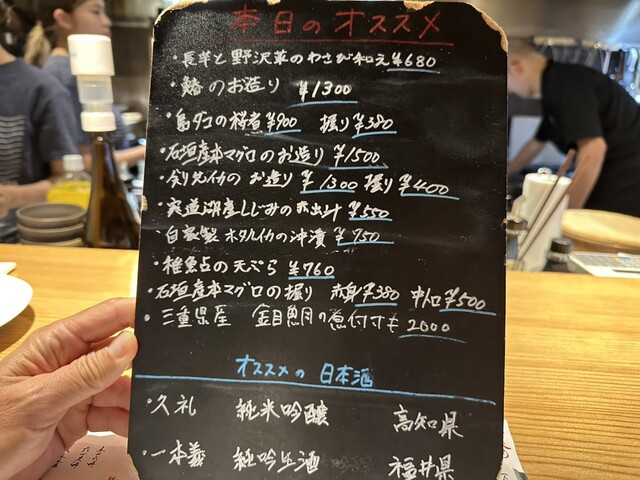 本日のオススメ
・長芋と野沢菜のわさび和え ¥680
・鰆のお造り ¥1300
・島ダコの柄煮 ¥900 握り ¥380
・石垣産本マグロのお造り ¥1500
・剣先イカの お造り ¥1300 握り ¥400
・宍道湖産しじみの赤出汁 ¥550
・自家製 ホタルイカの沖漬 ¥750
・稚魚の天ぷら ¥760
・石垣産本マグロの握り 赤身 ¥380 中トロ ¥500
・三重県産 金目鯛の煮付け 2000
オススメの 日本酒
・久礼 純米吟醸 高知県
・一本義 純吟生酒 福井県